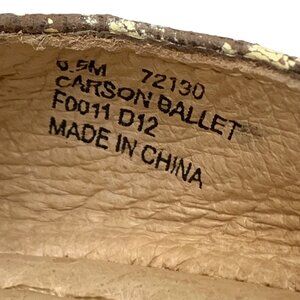 6.5M 72130
CARSON BALLET
F0011 D12
MADE IN CHINA